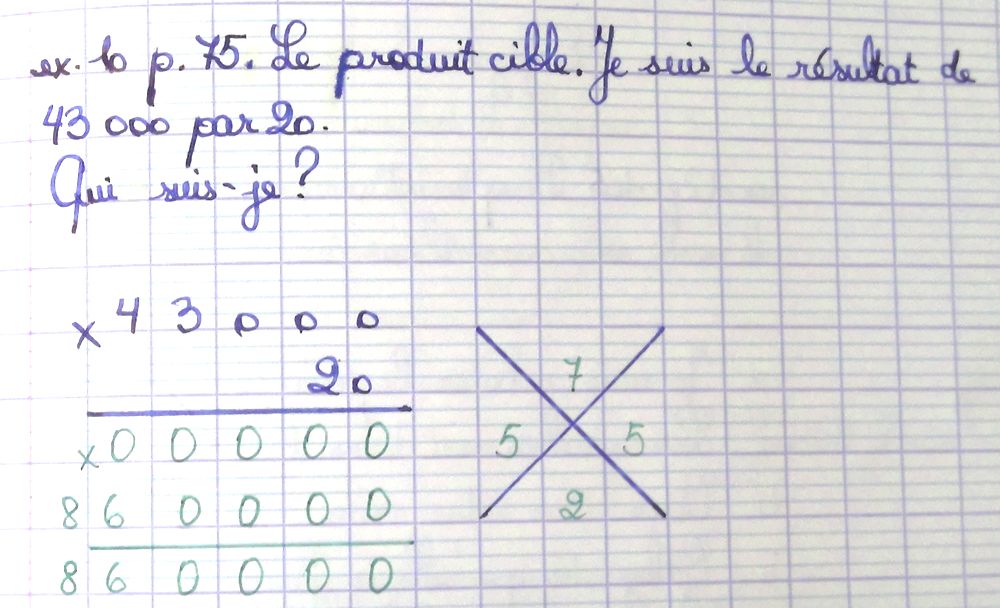 ex. 10 p. 75. Le produit cible. Je suis le résultat de
43 000 par 20.
Qui suis-je ?
x 4 3 0 0 0
20
x 0 0 0 0 0
8 6 0 0 0 0
8 6 0 0 0 0
7
5 5
2